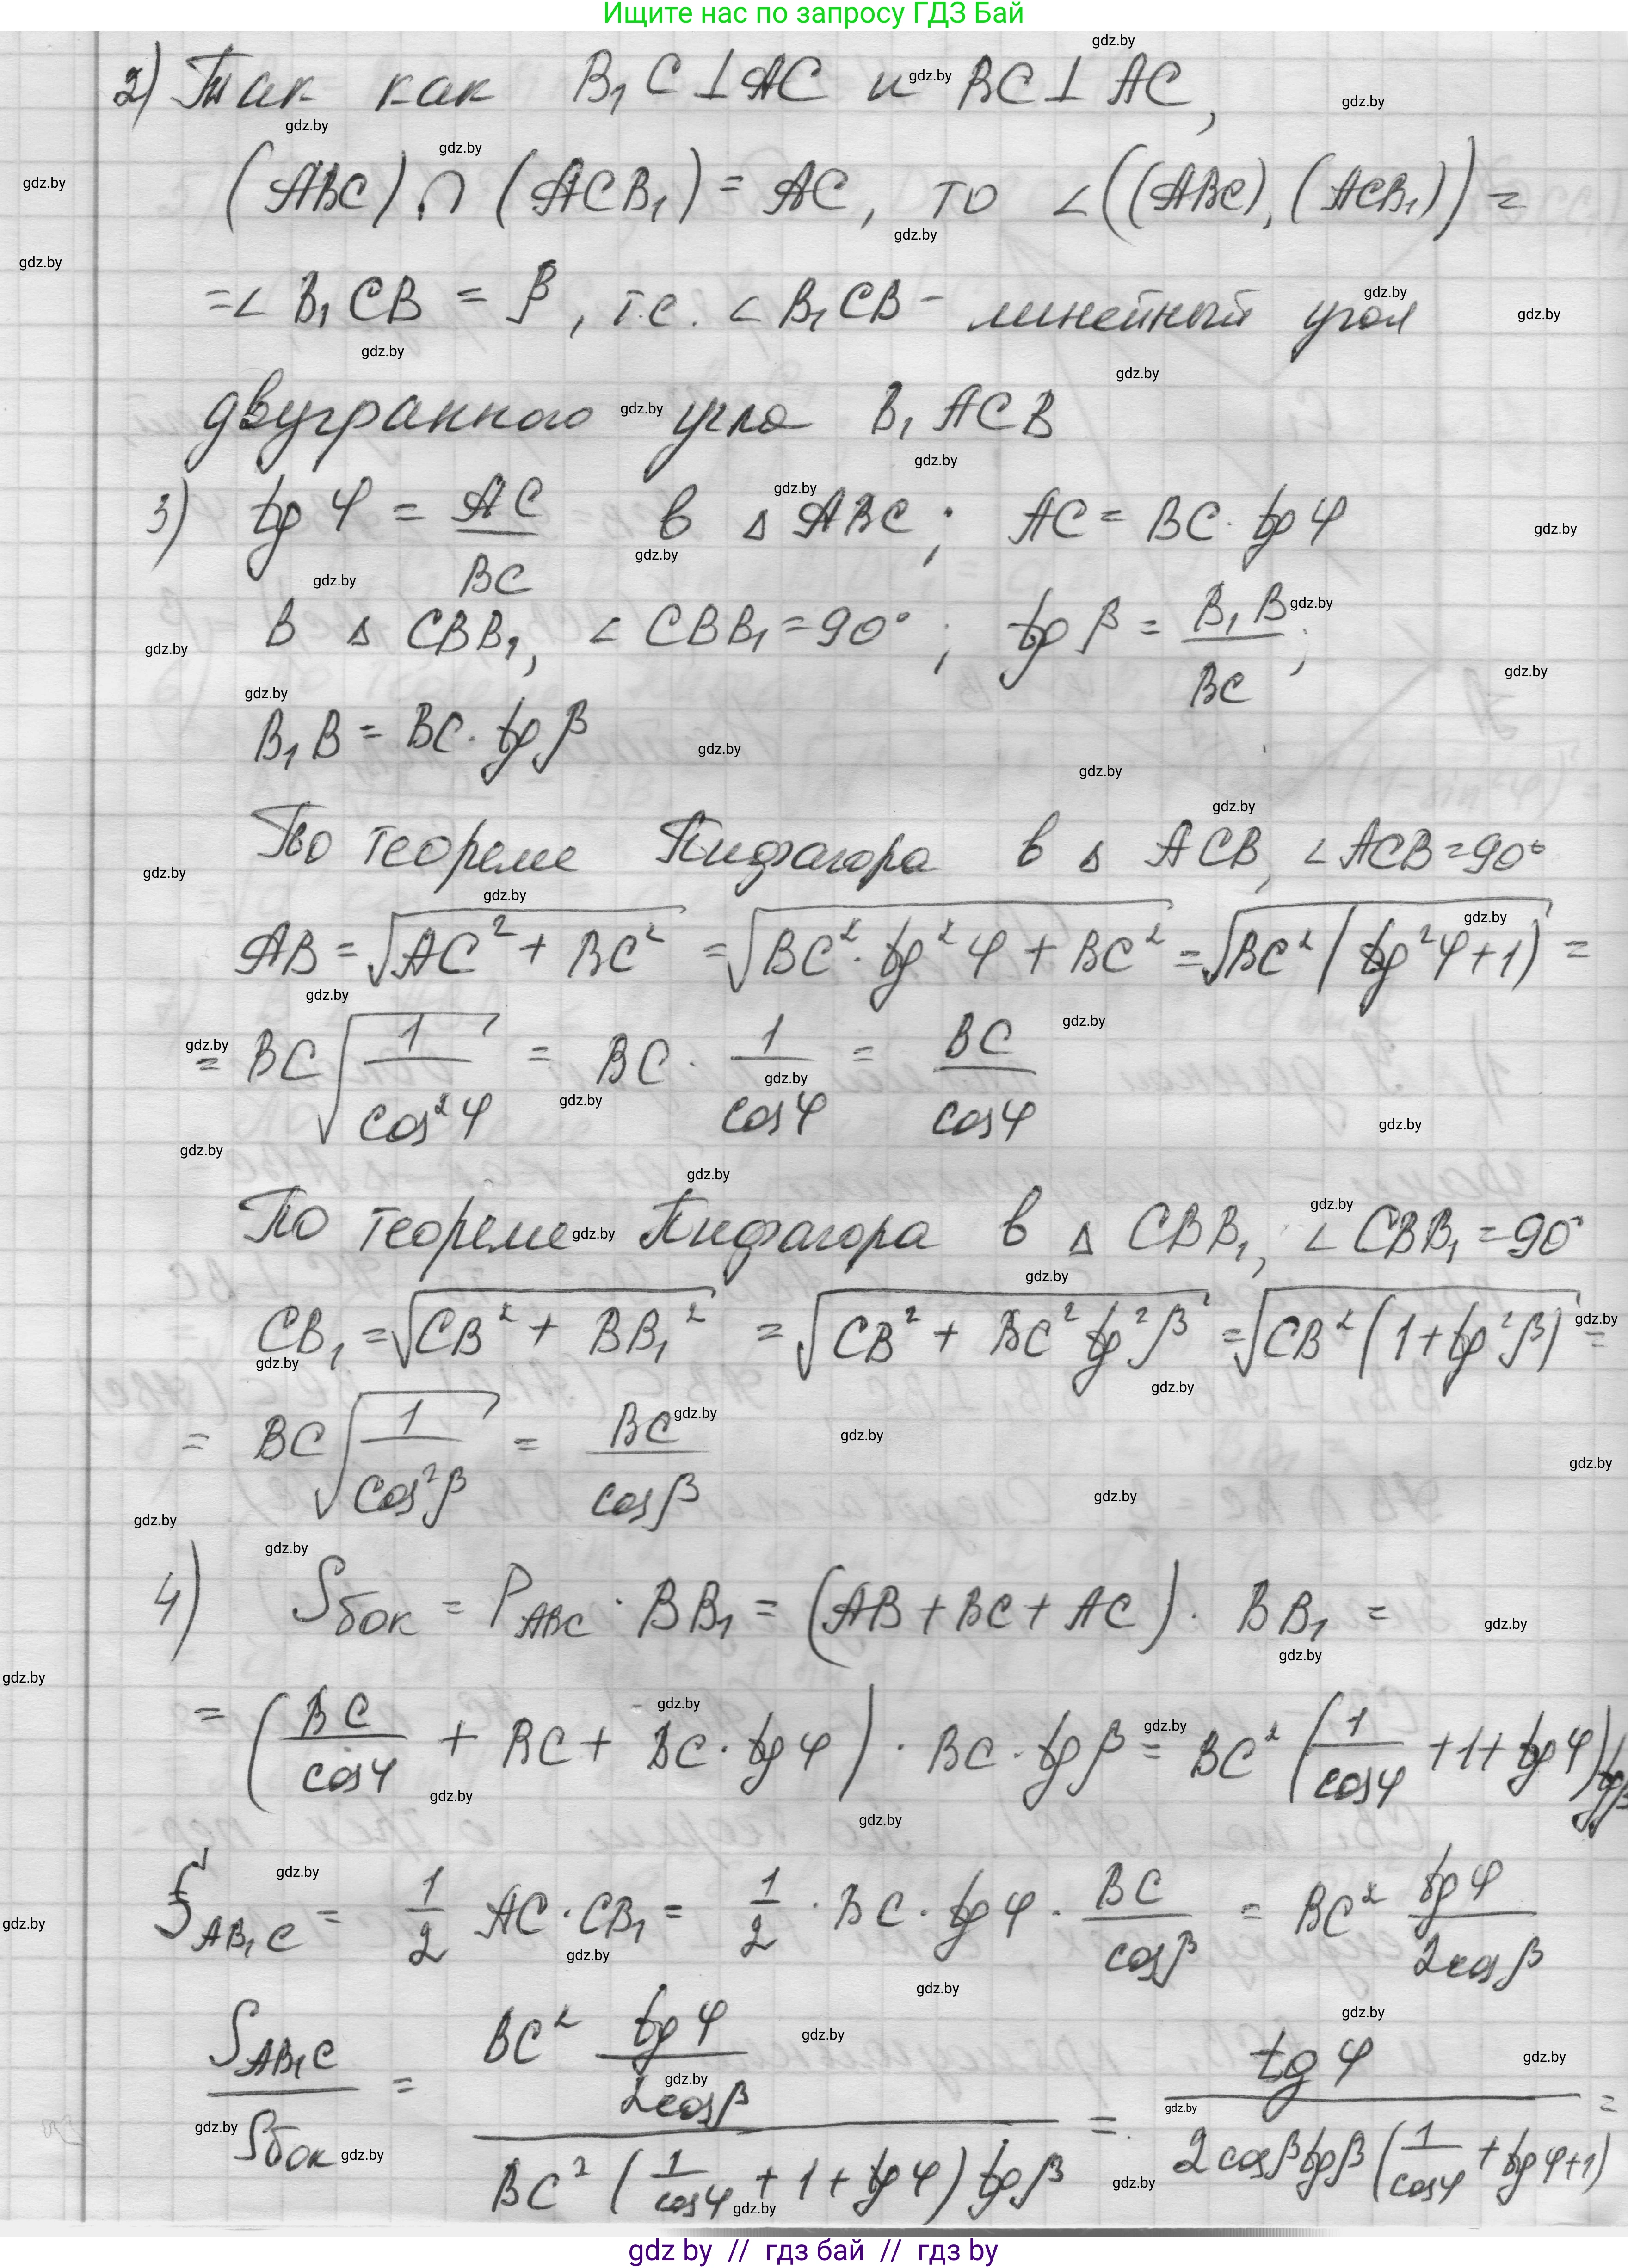 Ищите нас по запросу ГДЗ Бай
2) Так как B₁C ⊥ AC и BC ⊥ AC,
(ABC) ∩ (ACB₁) = AC, то ∠((ABC), (ACB₁)) =
= ∠ B₁CB = β, т.е. ∠ B₁CB - линейный угол
двугранного угла B₁ACB
3) tg φ = AC/BC в △ ABC; AC = BC · tg φ
В △ CBB₁, ∠ CBB₁ = 90°; tg β = B₁B/BC;
B₁B = BC · tg β
По теореме Пифагора в △ ACB, ∠ ACB = 90°
AB = √(AC² + BC²) = √(BC² · tg² φ + BC²) = √(BC² (tg² φ + 1)) =
= BC √(1/cos² φ) = BC · 1/cos φ = BC/cos φ
По теореме Пифагора в △ CBB₁, ∠ CBB₁ = 90°
CB₁ = √(CB² + BB₁²) = √(CB² + BC² tg² β) = √(CB² (1 + tg² β)) =
= BC √(1/cos² β) = BC/cos β
4) Sбок = P_ABC · BB₁ = (AB + BC + AC) · BB₁ =
= (BC/cos φ + BC + BC · tg φ) · BC · tg β = BC² (1/cos φ + 1 + tg φ) tg β
S_AB₁C = 1/2 AC · CB₁ = 1/2 · BC · tg φ · BC/cos β = BC² tg φ/2cos β
S_AB₁C/Sбок = BC² tg φ/2cos β / BC² (1/cos φ + 1 + tg φ) tg β = tg φ / 2 cos β tg β (1/cos φ + tg φ + 1) =
gdz by // гдз бай // гдз by